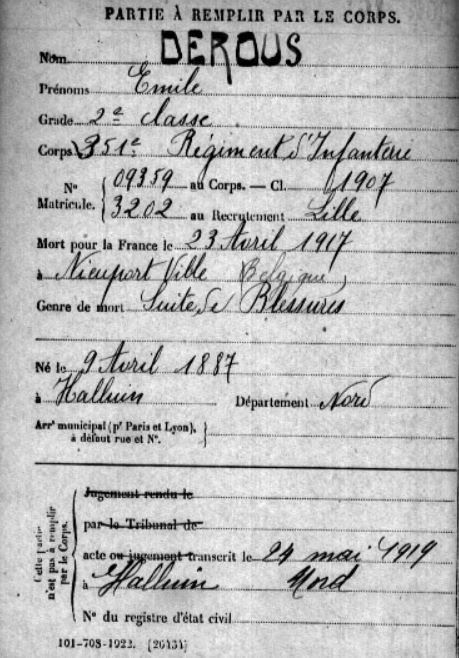 PARTIE À REMPLIR PAR LE CORPS.
Nom DEROUS
Prénoms Emile
Grade 2e classe
Corps 351e Régiment d'Infanterie
N° Matricule. { 09359 au Corps. — Cl. 1907
3202 au Recrutement Lille
Mort pour la France le 23 Avril 1917
à Nieuport Ville Belgique
Genre de mort Suite de Blessures
Né le 9 Avril 1887
à Halluin Département Nord
Arrt municipal (pr Paris et Lyon), à défaut rue et N°. }
Cette partie n'est pas à remplir par le Corps.
Jugement rendu le
par le Tribunal de
acte ou jugement transcrit le 24 mai 1919
à Halluin Nord
N° du registre d'état civil
101-708-1922. [26434]